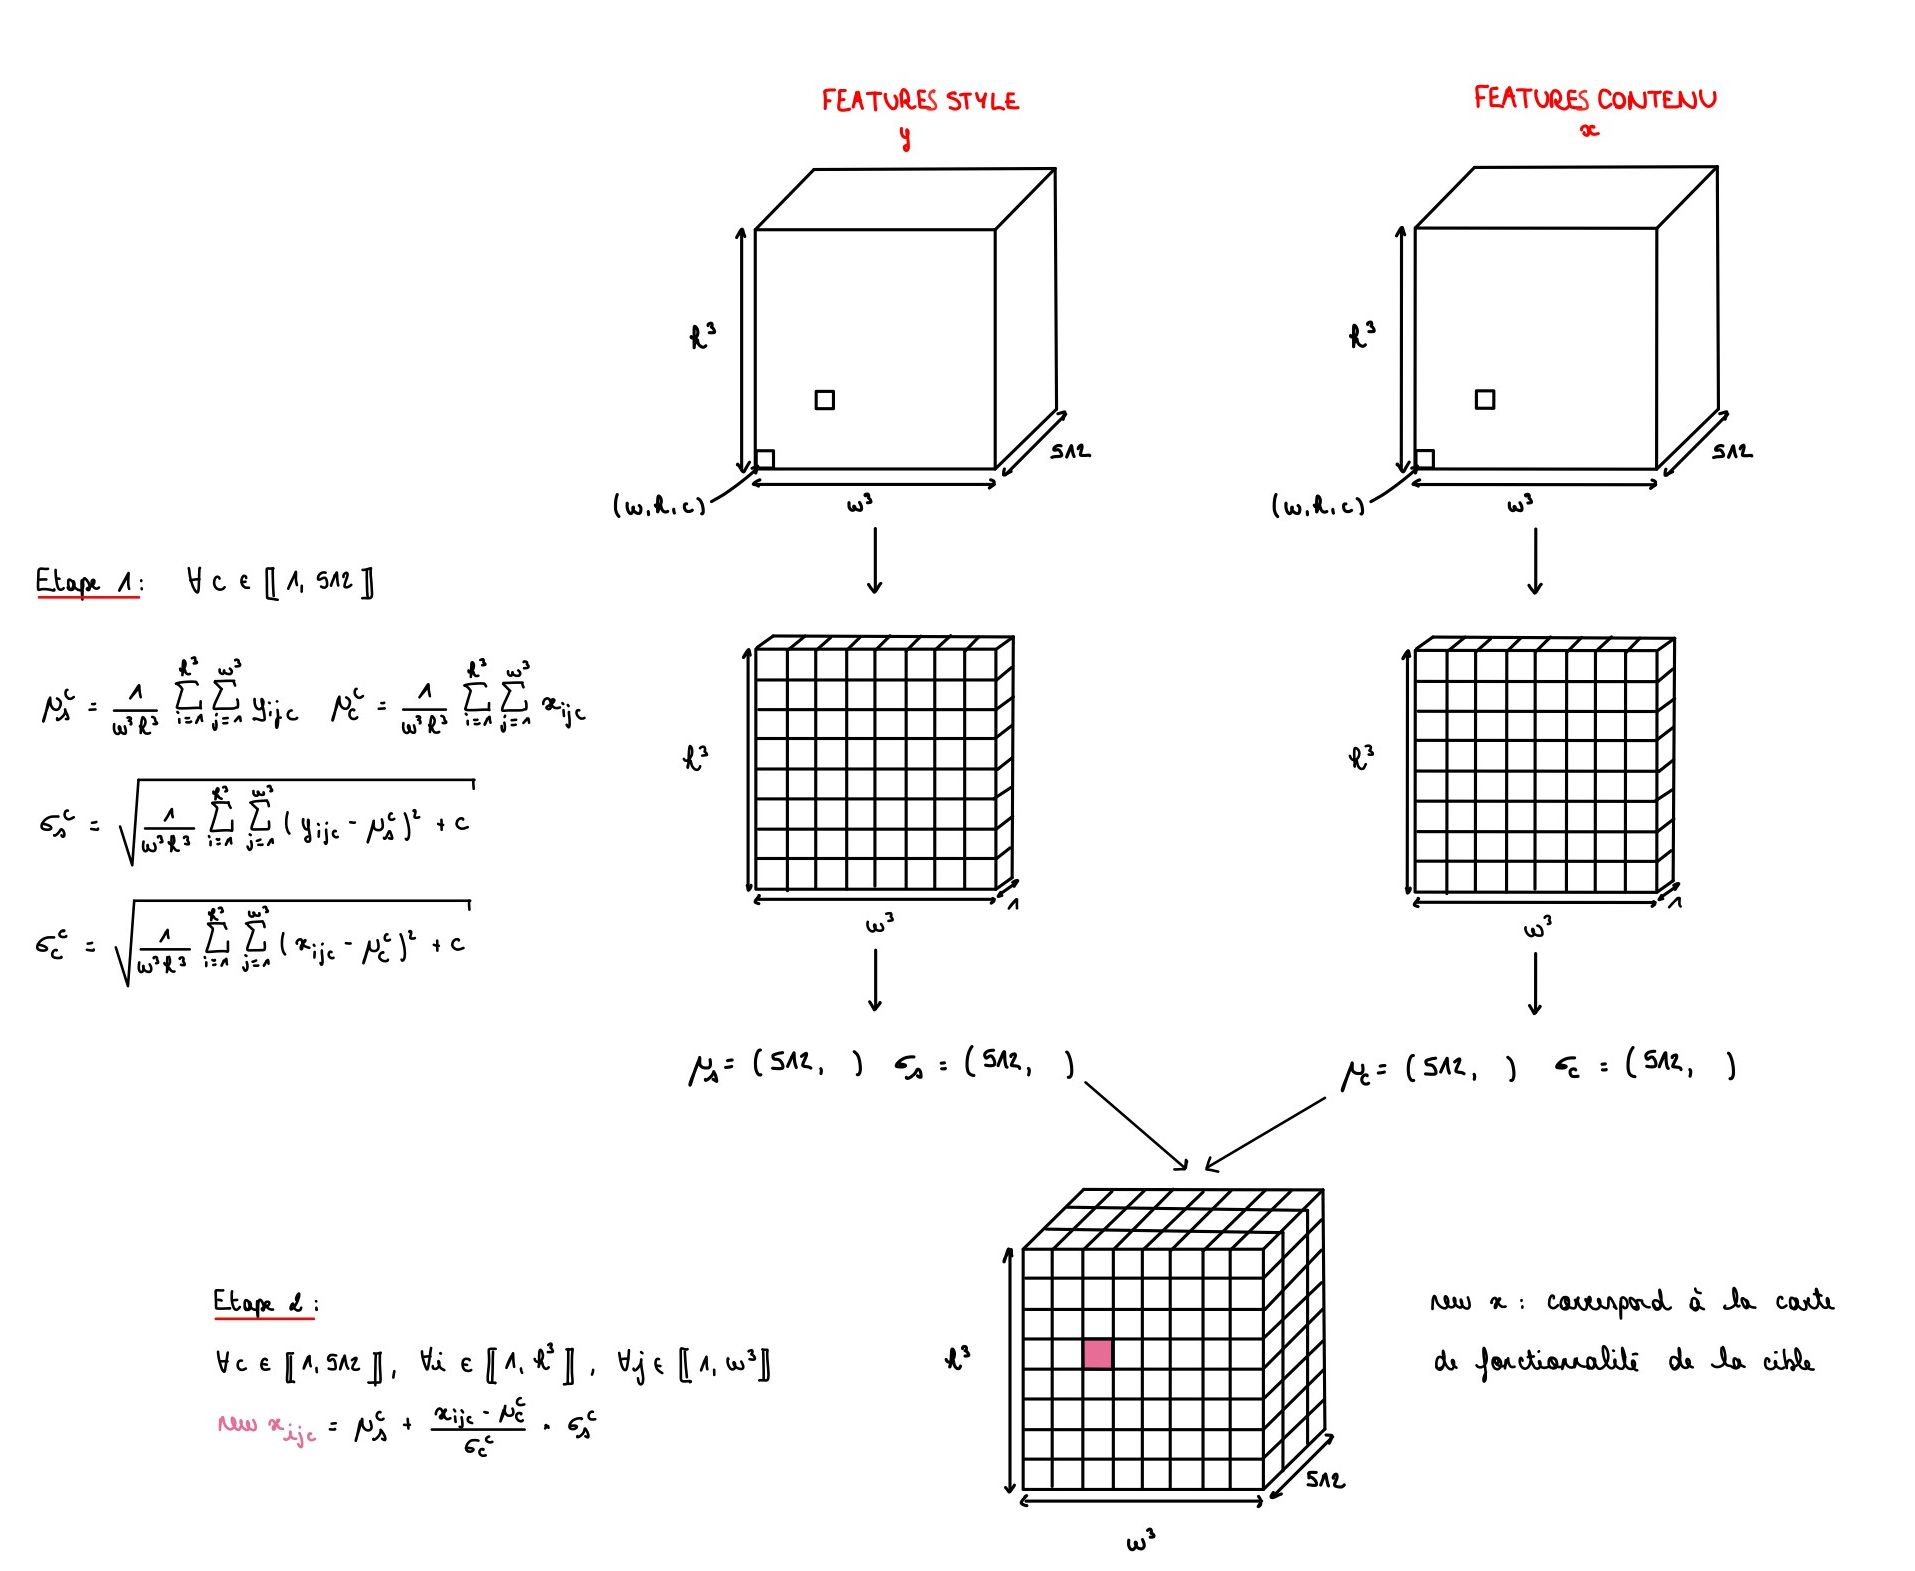 FEATURES STYLE
y
FEATURES CONTENU
x
h³
512
(w,h,c)
w³
h³
512
(w,h,c)
w³
Etape 1: ∀ c ∈ ⟦1, 512⟧
μₛᶜ = 1/(w³h³) Σ_{i=1}^{h³} Σ_{j=1}^{w³} y_{ijc} μ_cᶜ = 1/(w³h³) Σ_{i=1}^{h³} Σ_{j=1}^{w³} x_{ijc}
σₛᶜ = √(1/(w³h³) Σ_{i=1}^{h³} Σ_{j=1}^{w³} (y_{ijc} - μₛᶜ)² + c)
σ_cᶜ = √(1/(w³h³) Σ_{i=1}^{h³} Σ_{j=1}^{w³} (x_{ijc} - μ_cᶜ)² + c)
h³
1
w³
h³
1
w³
μₛ = (512, ) σₛ = (512, )
μ_c = (512, ) σ_c = (512, )
Etape 2:
∀ c ∈ ⟦1, 512⟧, ∀i ∈ ⟦1, h³⟧, ∀j ∈ ⟦1, w³⟧
new x_{ijc} = μₛᶜ + (x_{ijc} - μ_cᶜ)/σ_cᶜ · σₛᶜ
h³
512
w³
new x : correspond à la carte
de fonctionnalité de la cible